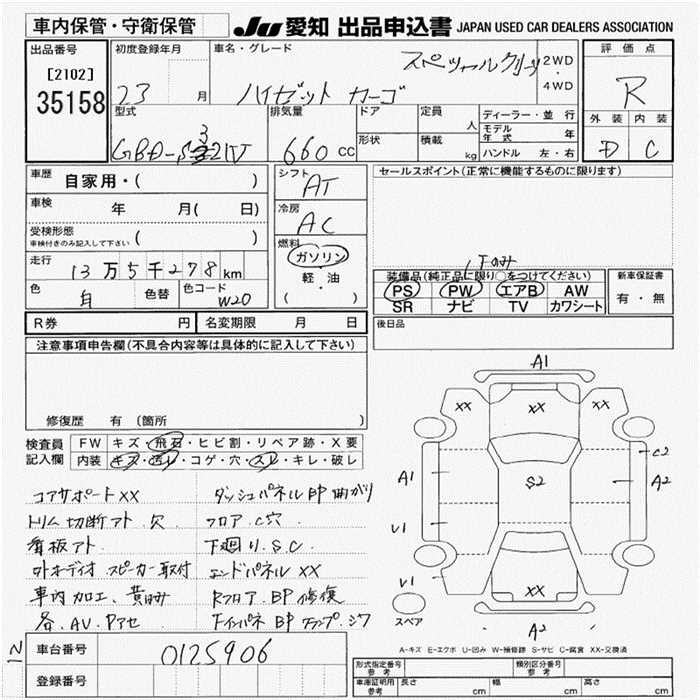 車内保管・守衛保管
JU 愛知 出品申込書 JAPAN USED CAR DEALERS ASSOCIATION
出品番号 初度登録年月 車名・グレード 評価点
[2102] スペシャルクリーン 2WD・4WD
35158 23 月 ハイゼット カーゴ R
型式 排気量 ドア 定員 人 ディーラー・並行 外装 内装
モデル年式 年
GBD-S321V 660 cc 形状 積載 kg ハンドル 左・右 D C
車歴 自家用・( ) シフト AT セールスポイント(正常に機能するものに限ります)
車検 年 月( 日) 冷房 AC
受検形態
車検付きのみ記入して下さい ( ) 燃料 ガソリン
走行 13万5千278km 軽・油
色 白 色替 色コード W20 ( )
装備品(純正品に限り○をつけてください) 新車保証書
PS PW エアB AW 有・無
SR ナビ TV カワシート
R券 円 名変期限 月 日 後日品
注意事項申告欄(不具合内容等は具体的に記入して下さい)
修復歴 有 (箇所 )
検査員記入欄 FW キズ・飛石・ヒビ割・リペア跡・X要
内装 キズ・汚レ・コゲ・穴・スレ・キレ・破レ
コアサポート XX ダッシュパネル BP 曲がり
トリム 切断アト 穴 フロア C穴
看板アト 下廻り S.C
外オーディオ スピーカー取付 エンドパネル XX
車内加工 Rフロア BP 修復
各 AV. Pアセ
A1
XX XX XX
C2
A1 S2 A2
V1
V1 XX
スペア A2
A-キズ E-エクボ U-凹み W-補修跡 S-サビ C-腐食 XX-交換済
車台番号 0125906
登録番号
形式指定番号 参考 類別区分番号 参考
車庫証明用 参考 長さ cm 幅 cm 高さ cm